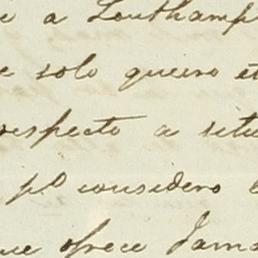 a Southamp
solo quiero
respecto a situ
pº considero
que ofrece Jama